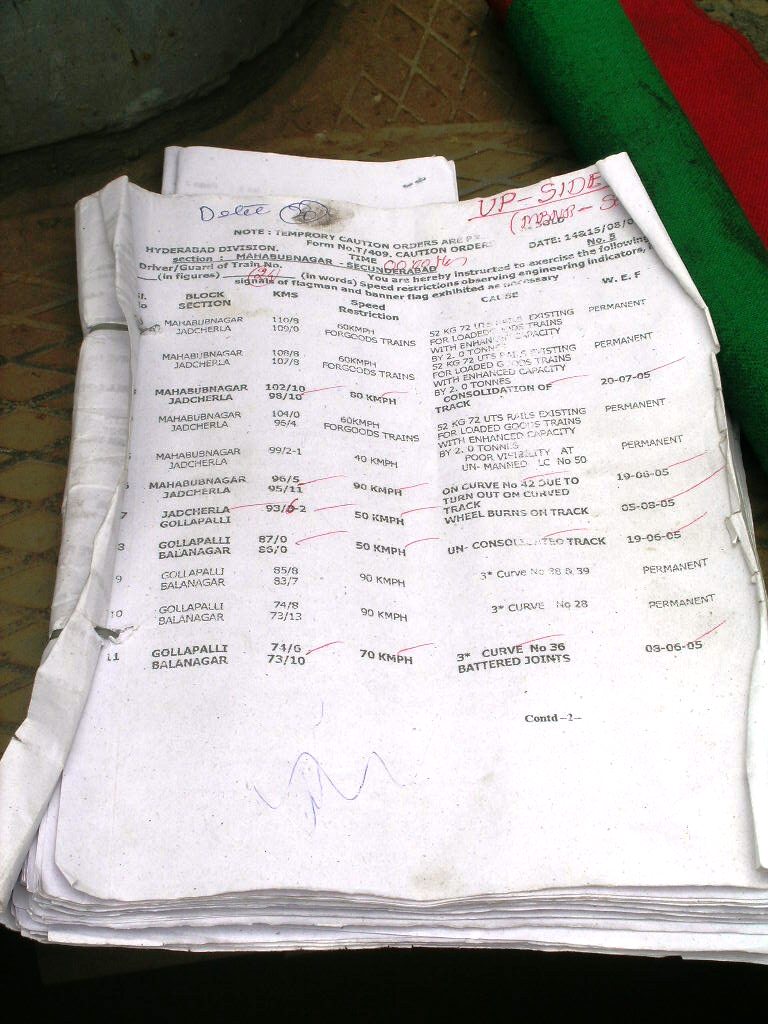 UP-SIDE
NOTE : TEMPRORY CAUTION ORDERS ARE
HYDERABAD DIVISION. Form No.T/409. CAUTION ORDER DATE: 14&15/08/0
section : MAHABUBNAGAR - SECUNDERABAD TIME No. 5
Driver/Guard of Train No. You are hereby instructed to exercise the following
(in figures) (in words) Speed restrictions observing engineering indicators,
signals of flagman and banner flag exhibited as necessary
BLOCK SECTION KMS Speed Restriction CAUSE W.E.F
MAHABUBNAGAR 110/8 60KMPH 52 KG 72 UTS RAILS EXISTING PERMANENT
JADCHERLA 109/0 FORGOODS TRAINS FOR LOADED GOODS TRAINS
WITH ENHANCED CAPACITY
BY 2. 0 TONNES
MAHABUBNAGAR 108/8 60KMPH 52 KG 72 UTS RAILS EXISTING PERMANENT
JADCHERLA 107/8 FORGOODS TRAINS FOR LOADED GOODS TRAINS
WITH ENHANCED CAPACITY
BY 2. 0 TONNES
MAHABUBNAGAR 102/10 80 KMPH CONSOLIDATION OF 20-07-05
JADCHERLA 98/10 TRACK
MAHABUBNAGAR 104/0 60KMPH 52 KG 72 UTS RAILS EXISTING PERMANENT
JADCHERLA 96/4 FORGOODS TRAINS FOR LOADED GOODS TRAINS
WITH ENHANCED CAPACITY
BY 2. 0 TONNES
MAHABUBNAGAR 99/2-1 40 KMPH POOR VISIBILITY AT PERMANENT
JADCHERLA UN- MANNED LC No 50
MAHABUBNAGAR 96/5 90 KMPH ON CURVE No 42 DUE TO 19-06-05
JADCHERLA 95/11 TURN OUT ON CURVED
TRACK
7 JADCHERLA 93/6-2 50 KMPH WHEEL BURNS ON TRACK 05-08-05
GOLLAPALLI
8 GOLLAPALLI 87/0 50 KMPH UN- CONSOLIDATED TRACK 19-06-05
BALANAGAR 86/0
9 GOLLAPALLI 85/8 90 KMPH 3* Curve No 38 & 39 PERMANENT
BALANAGAR 83/7
10 GOLLAPALLI 74/8 90 KMPH 3* CURVE No 28 PERMANENT
BALANAGAR 73/13
11 GOLLAPALLI 74/6 70 KMPH 3* CURVE No 36 08-06-05
BALANAGAR 73/10 BATTERED JOINTS
Contd -2-